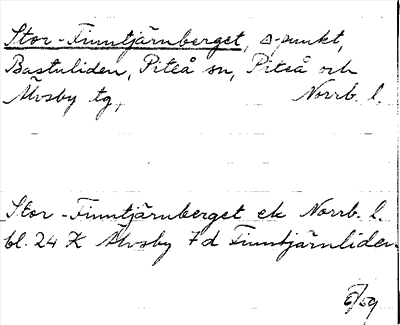 Stor-Finntjärnberget, △-punkt,
Bastuliden, Piteå sn, Piteå och
Älvsby tg, Norrb. l.
Stor-Finntjärnberget ek Norrb. l.
bl. 24 K Älvsby 7d Finntjärnliden.
6/59